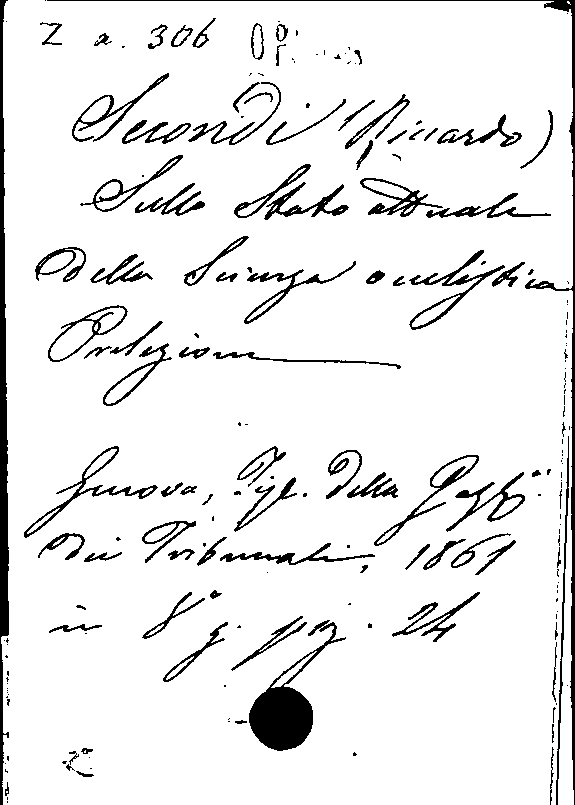 Z a. 306 Op.
Secondi (Riccardo)
Sullo Stato attuale
della Scienza oculistica
Prolezione
Genova, Tip. della Gazz.
dei Tribunali, 1861
in 8° g. pag. 24